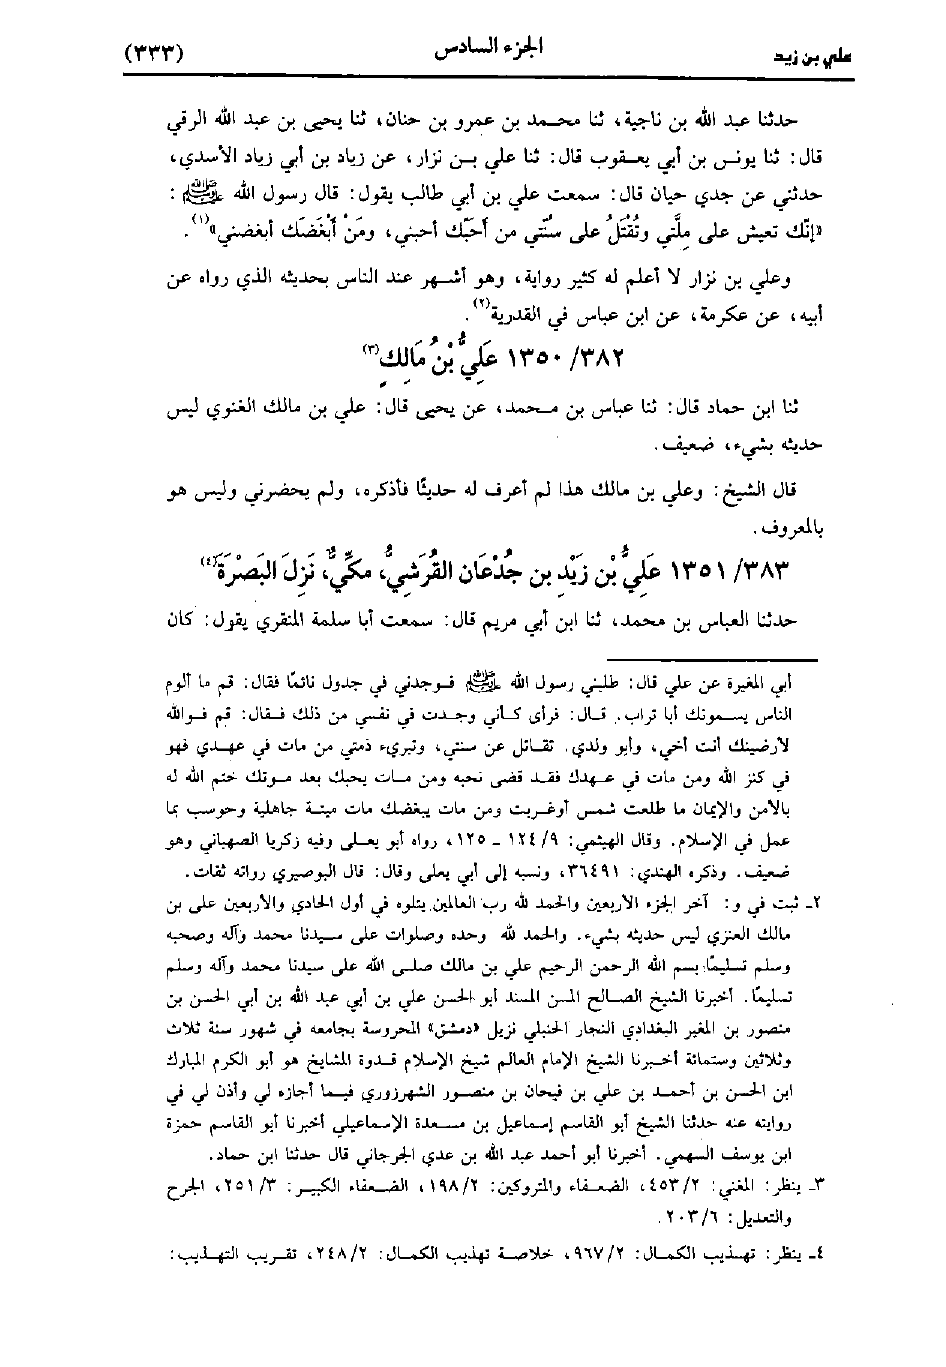 علي بن زيد الجزء السادس (٣٣٣)
حدثنا عبد الله بن ناجية، ثنا محمد بن عمرو بن حنان، ثنا يحيى بن عبد الله الرقي
قال: ثنا يونس بن أبي يعقوب قال: ثنا علي بن نزار، عن زياد بن أبي زياد الأسدي،
حدثني عن جدي حيان قال: سمعت علي بن أبي طالب يقول: قال رسول الله ﷺ :
«إنّك تعيش على مِلَّتي وتُقْتَلُ على سنّتي من أَحَبّك أحبني، ومَنْ أَبْغَضَك أبغضني»(١).
وعلي بن نزار لا أعلم له كثير رواية، وهو أشهر عند الناس بحديثه الذي رواه عن
أبيه، عن عكرمة، عن ابن عباس في القدرية(٢).
٣٨٢/ ١٣٥٠ عَلِيُّ بْنُ مَالِكٍ(٣)
ثنا ابن حماد قال: ثنا عباس بن محمد، عن يحيى قال: علي بن مالك الغنوي ليس
حديثه بشيء، ضعيف.
قال الشيخ: وعلي بن مالك هذا لم أعرف له حديثًا فأذكره، ولم يحضرني وليس هو
بالمعروف.
٣٨٣/ ١٣٥١ عَلِيُّ بْن زَيْدِ بن جُدْعَان القُرَشِيُّ، مكِّيٌّ، نَزِلَ البَصْرَةَ(٤)
حدثنا العباس بن محمد، ثنا ابن أبي مريم قال: سمعت أبا سلمة المنقري يقول: كان
أبي المغيرة عن علي قال: طلبني رسول الله ﷺ فوجدني في جدول نائمًا فقال: قم ما ألوم
الناس يسمونك أبا تراب. قال: فرأى كأني وجدت في نفسي من ذلك فقال: قم فوالله
لأرضينك أنت أخي، وأبو ولدي. تقاتل عن سنتي، وتبريء ذمتي من مات في عهدي فهو
في كنز الله ومن مات في عهدك فقد قضى نحبه ومن مات يحبك بعد موتك ختم الله له
بالأمن والإيمان ما طلعت شمس أوغربت ومن مات يبغضك مات ميتة جاهلية وحوسب بما
عمل في الإسلام. وقال الهيثمي: ٩/ ١٢٤ - ١٢٥، رواه أبو يعلى وفيه زكريا الصهباني وهو
ضعيف. وذكره الهندي: ٣٦٤٩١، ونسبه إلى أبي يعلى وقال: قال البوصيري رواته ثقات.
٢- ثبت في و: آخر الجزء الأربعين والحمد لله رب العالمين. يتلوه في أول الحادي والأربعين على بن
مالك العنزي ليس حديثه بشيء. والحمد لله وحده وصلوات على سيدنا محمد وآله وصحبه
وسلم تسليمًا. بسم الله الرحمن الرحيم علي بن مالك صلى الله على سيدنا محمد وآله وسلم
تسليمًا. أخبرنا الشيخ الصالح المسن المسند أبو الحسن علي بن أبي عبد الله بن أبي الحسن بن
منصور بن المغير البغدادي النجار الحنبلي نزيل «دمشق» المحروسة بجامعه في شهور سنة ثلاث
وثلاثين وستمائة أخبرنا الشيخ الإمام العالم شيخ الإسلام قدوة المشايخ هو أبو الكرم المبارك
ابن الحسن بن أحمد بن علي بن فيحان بن منصور الشهرزوري فيما أجازه لي وأذن لي في
روايته عنه حدثنا الشيخ أبو القاسم إسماعيل بن مسعدة الإسماعيلي أخبرنا أبو القاسم حمزة
ابن يوسف السهمي. أخبرنا أبو أحمد عبد الله بن عدي الجرجاني قال حدثنا ابن حماد.
٣- ينظر: المغني: ٢/ ٤٥٣، الضعفاء والمتروكين: ٢/ ١٩٨، الضعفاء الكبير: ٣/ ٢٥١، الجرح
والتعديل: ٦/ ٢٠٣.
٤- ينظر: تهذيب الكمال: ٢/ ٩٦٧، خلاصة تهذيب الكمال: ٢/ ٢٤٨، تقريب التهذيب: